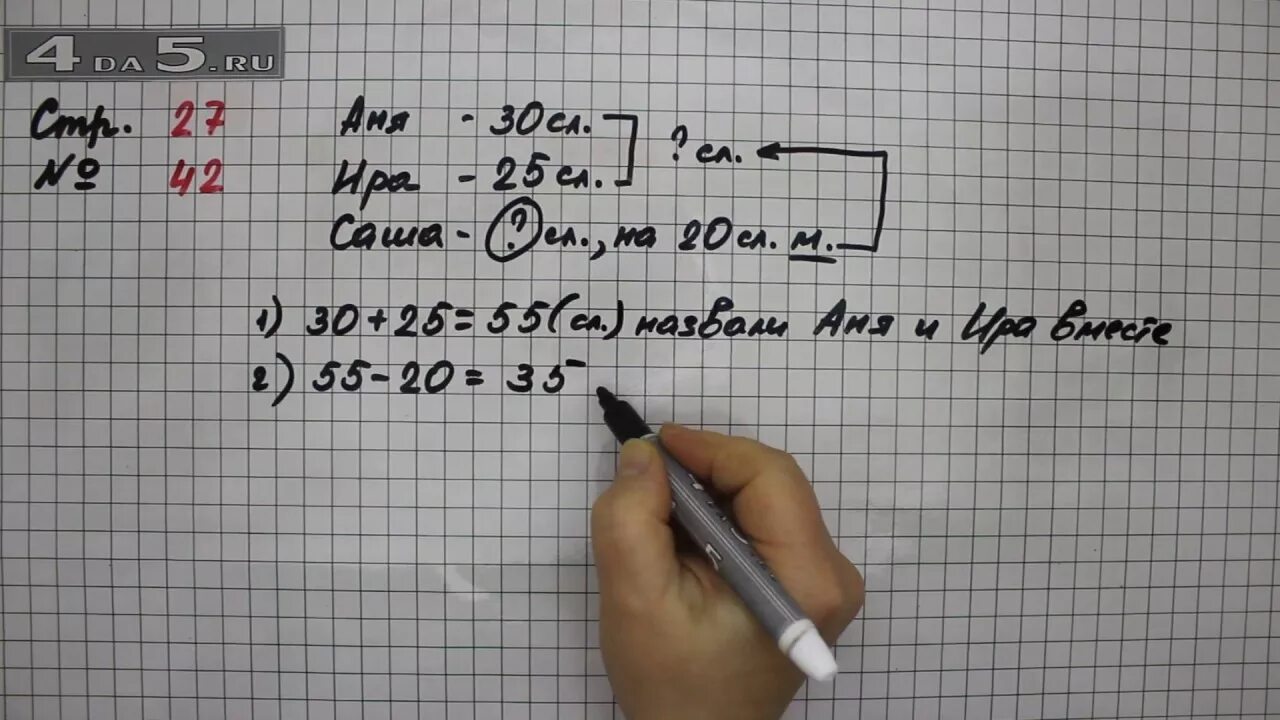 4DA5.RU
Стр. 27
№ 42
Аня - 30 сл.
Ира - 25 сл.
? сл.
Саша - ? сл., на 20 сл. м.
1) 30 + 25 = 55 (сл.) назвали Аня и Ира вместе
2) 55 - 20 = 35